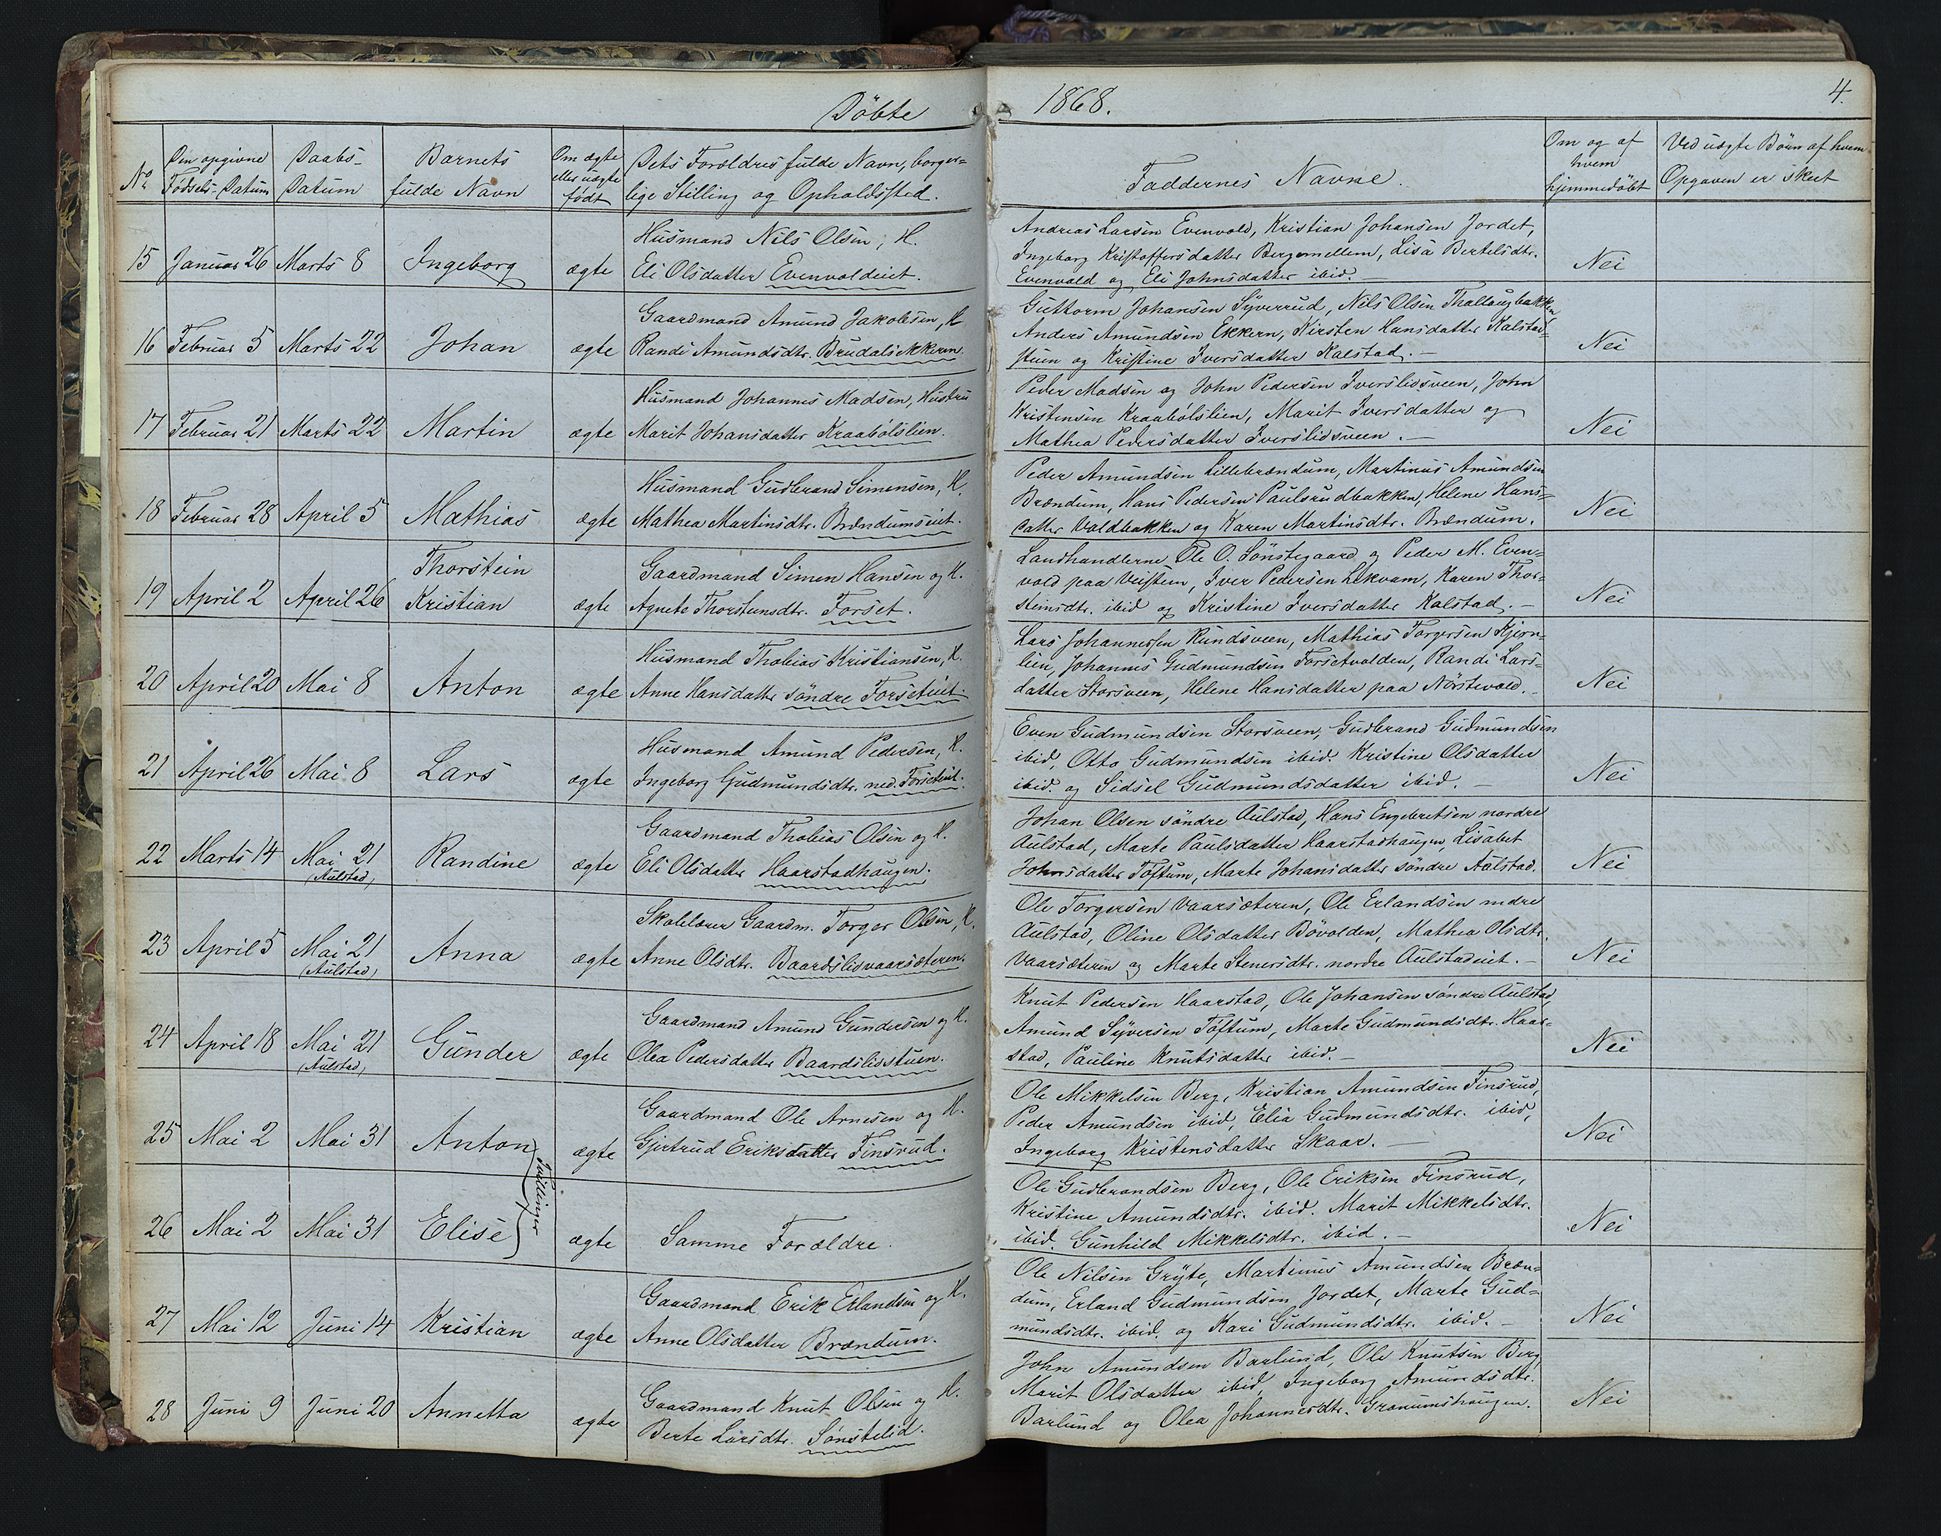 Döbte 1868. 4.
No
Den opgivne Fødsels-Datum
Daabs-Datum
Barnets fulde Navn
Om ægte eller uægte født
Dets Forældres fulde Navn, borgerlige Stilling og Opholdssted.
Faddernes Navne.
Om og af hvem hjemmedøbt
Ved uægte Børn af hvem Opgaven er skeet
15 Januar 26 Marts 8 Ingeborg ægte
Husmand Nils Olsen, H.
Eli Olsdatter Evenvoldeiet.
Andreas Larsen Evenvold, Kristian Johansen Jordet,
Ingeborg Kristoffersdatter Bergemellem, Lisa Bertelsdtr.
Evenvold og Eli Johnsdatter ibid. —
Nei
16 Februar 5 Marts 22 Johan ægte
Gaardmand Amund Jakobsen, H
Randi Amundsdtr. Brudalsekkern.
Guttorm Johansen Syverrud, Nils Olsen Thallaugbakken
Anders Amundsen Ekkern, Kirsten Hansdatter Kalstad-
stuen og Kristine Iversdatter Kalstad. —
Nei
17 Februar 21 Marts 22 Martin ægte
Husmand Johannes Madsen, Hustru
Marit Johansdatter Kraabølslien.
Peder Madsen og John Pedersen Iverslidsveen, John
Kristensen Kraabølslien, Marit Iversdatter og
Mathea Pedersdatter Iverslidsveen. —
Nei
18 Februar 28 April 5 Mathias ægte
Husmand Gudbrand Simensen, H.
Mathea Martinsdtr. Brændumseiet.
Peder Amundsen Lillebrændum, Martinus Amundsen
Brændum, Hans Pedersen Paulsrudbakken, Helene Hans-
datter Voldbakken og Karen Martinsdtr. Brændum.
Nei
19 April 2 April 26 Thorstein
Kristian ægte
Gaardmand Simen Hansen og H.
Agnete Thorstensdtr. Forset.
Landhandlerne Ole O. Sønstegaard og Peder M. Even-
vold paa Veistein, Iver Pedersen Lekvam, Karen Thor-
steinsdtr. ibid og Kristine Iversdatter Kalstad. —
Nei
20 April 20 Mai 8 Anton ægte
Husmand Thobias Kristiansen, H.
Anne Hansdatter søndre Forseteiet.
Lars Johannessen Rundsveen, Mathias Torgersen Kjern-
lien, Johannes Gudmundsen Forsetvolden, Randi Lars-
datter Storsveen, Helene Hansdatter paa Nørstevold. —
Nei
21 April 26 Mai 8 Lars ægte
Husmand Amund Pedersen, H.
Ingeborg Gudmundsdtr. ned. Forseteiet.
Even Gudmundsen Storsveen, Gudbrand Gudmundsen
ibid, Otto Gudmundsen ibid. Kristine Olsdatter
ibid. og Sidsel Gudmundsdatter ibid. —
Nei
22 Marts 14 Mai 21
(Aulstad) Randine ægte
Gaardmand Thobias Olsen og H.
Eli Olsdatter Haarstadhaugen.
Johan Olsen søndre Aulstad, Hans Engebretsen nordre
Aulstad, Marte Paulsdatter Haarstadhaugen, Lisabet
Johnsdatter Toftum, Marte Johansdatter søndre Aulstad.
Nei
23 April 5 Mai 21
(Aulstad) Anna ægte
Skolelærer Gaardm. Torger Olsen, H.
Anne Olsdtr. Baardslisvaarsæteren.
Ole Torgersen Vaarsæteren, Ole Erlandsen nedre
Aulstad, Oline Olsdatter Bøvolden, Mathea Olsdtr.
Vaarsæteren og Marte Stenersdtr. nordre Aulstadeiet. —
Nei
24 April 18 Mai 21
(Aulstad) Gunder ægte
Gaardmand Amund Gundersen og H.
Olea Pedersdatter Baardslisstuen.
Knut Pedersen Haarstad, Ole Johansen søndre Aulstad,
Amund Syversen Toftum, Marte Gudmundsdtr. Haar-
stad, Pauline Knutsdatter ibid. —
Nei
25 Mai 2 Mai 31 Anton ægte
Tvillinger
Gaardmand Ole Arnesen og H.
Gjertrud Eriksdatter Finsrud.
Ole Mikkelsen Berg, Kristian Amundsen Finsrud,
Peder Amundsen ibid, Elia Gudmundsdtr. ibid,
Ingeborg Kristensdatter Skaar. —
Nei
26 Mai 2 Mai 31 Elise ægte
Samme Forældre.
Ole Gudbrandsen Berg, Ole Eriksen Finsrud,
Kristine Amundsdtr. ibid. Marit Mikkelsdtr.
ibid. Gunhild Mikkelsdtr. ibid. —
Nei
27 Mai 12 Juni 14 Kristian ægte
Gaardmand Erik Erlandsen og H.
Anne Olsdatter Brændum.
Ole Nilsen Gryte, Martinus Amundsen Bræn-
dum, Erland Gudmundsen Jordet, Marte Gud-
mundsdtr. ibid, og Kari Gudmundsdtr. ibid. —
Nei
28 Juni 9 Juni 20 Annetta ægte
Gaardmand Knut Olsen og H.
Berte Larsdtr. Sønstelid.
John Amundsen Barlund, Ole Knutsen Berg,
Marit Olsdatter ibid, Ingeborg Amundsdtr.
Barlund og Olea Johannesdtr. Granumshaugen.
Nei